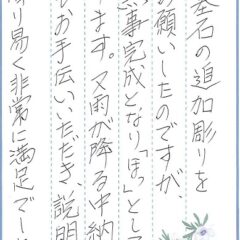 墓石の追加彫りを
お願いしたのですが、
事完成となり「ほっ」として
ります。又雨が降る中納
もお手伝いいただき、説明
り易く非常に満足でし